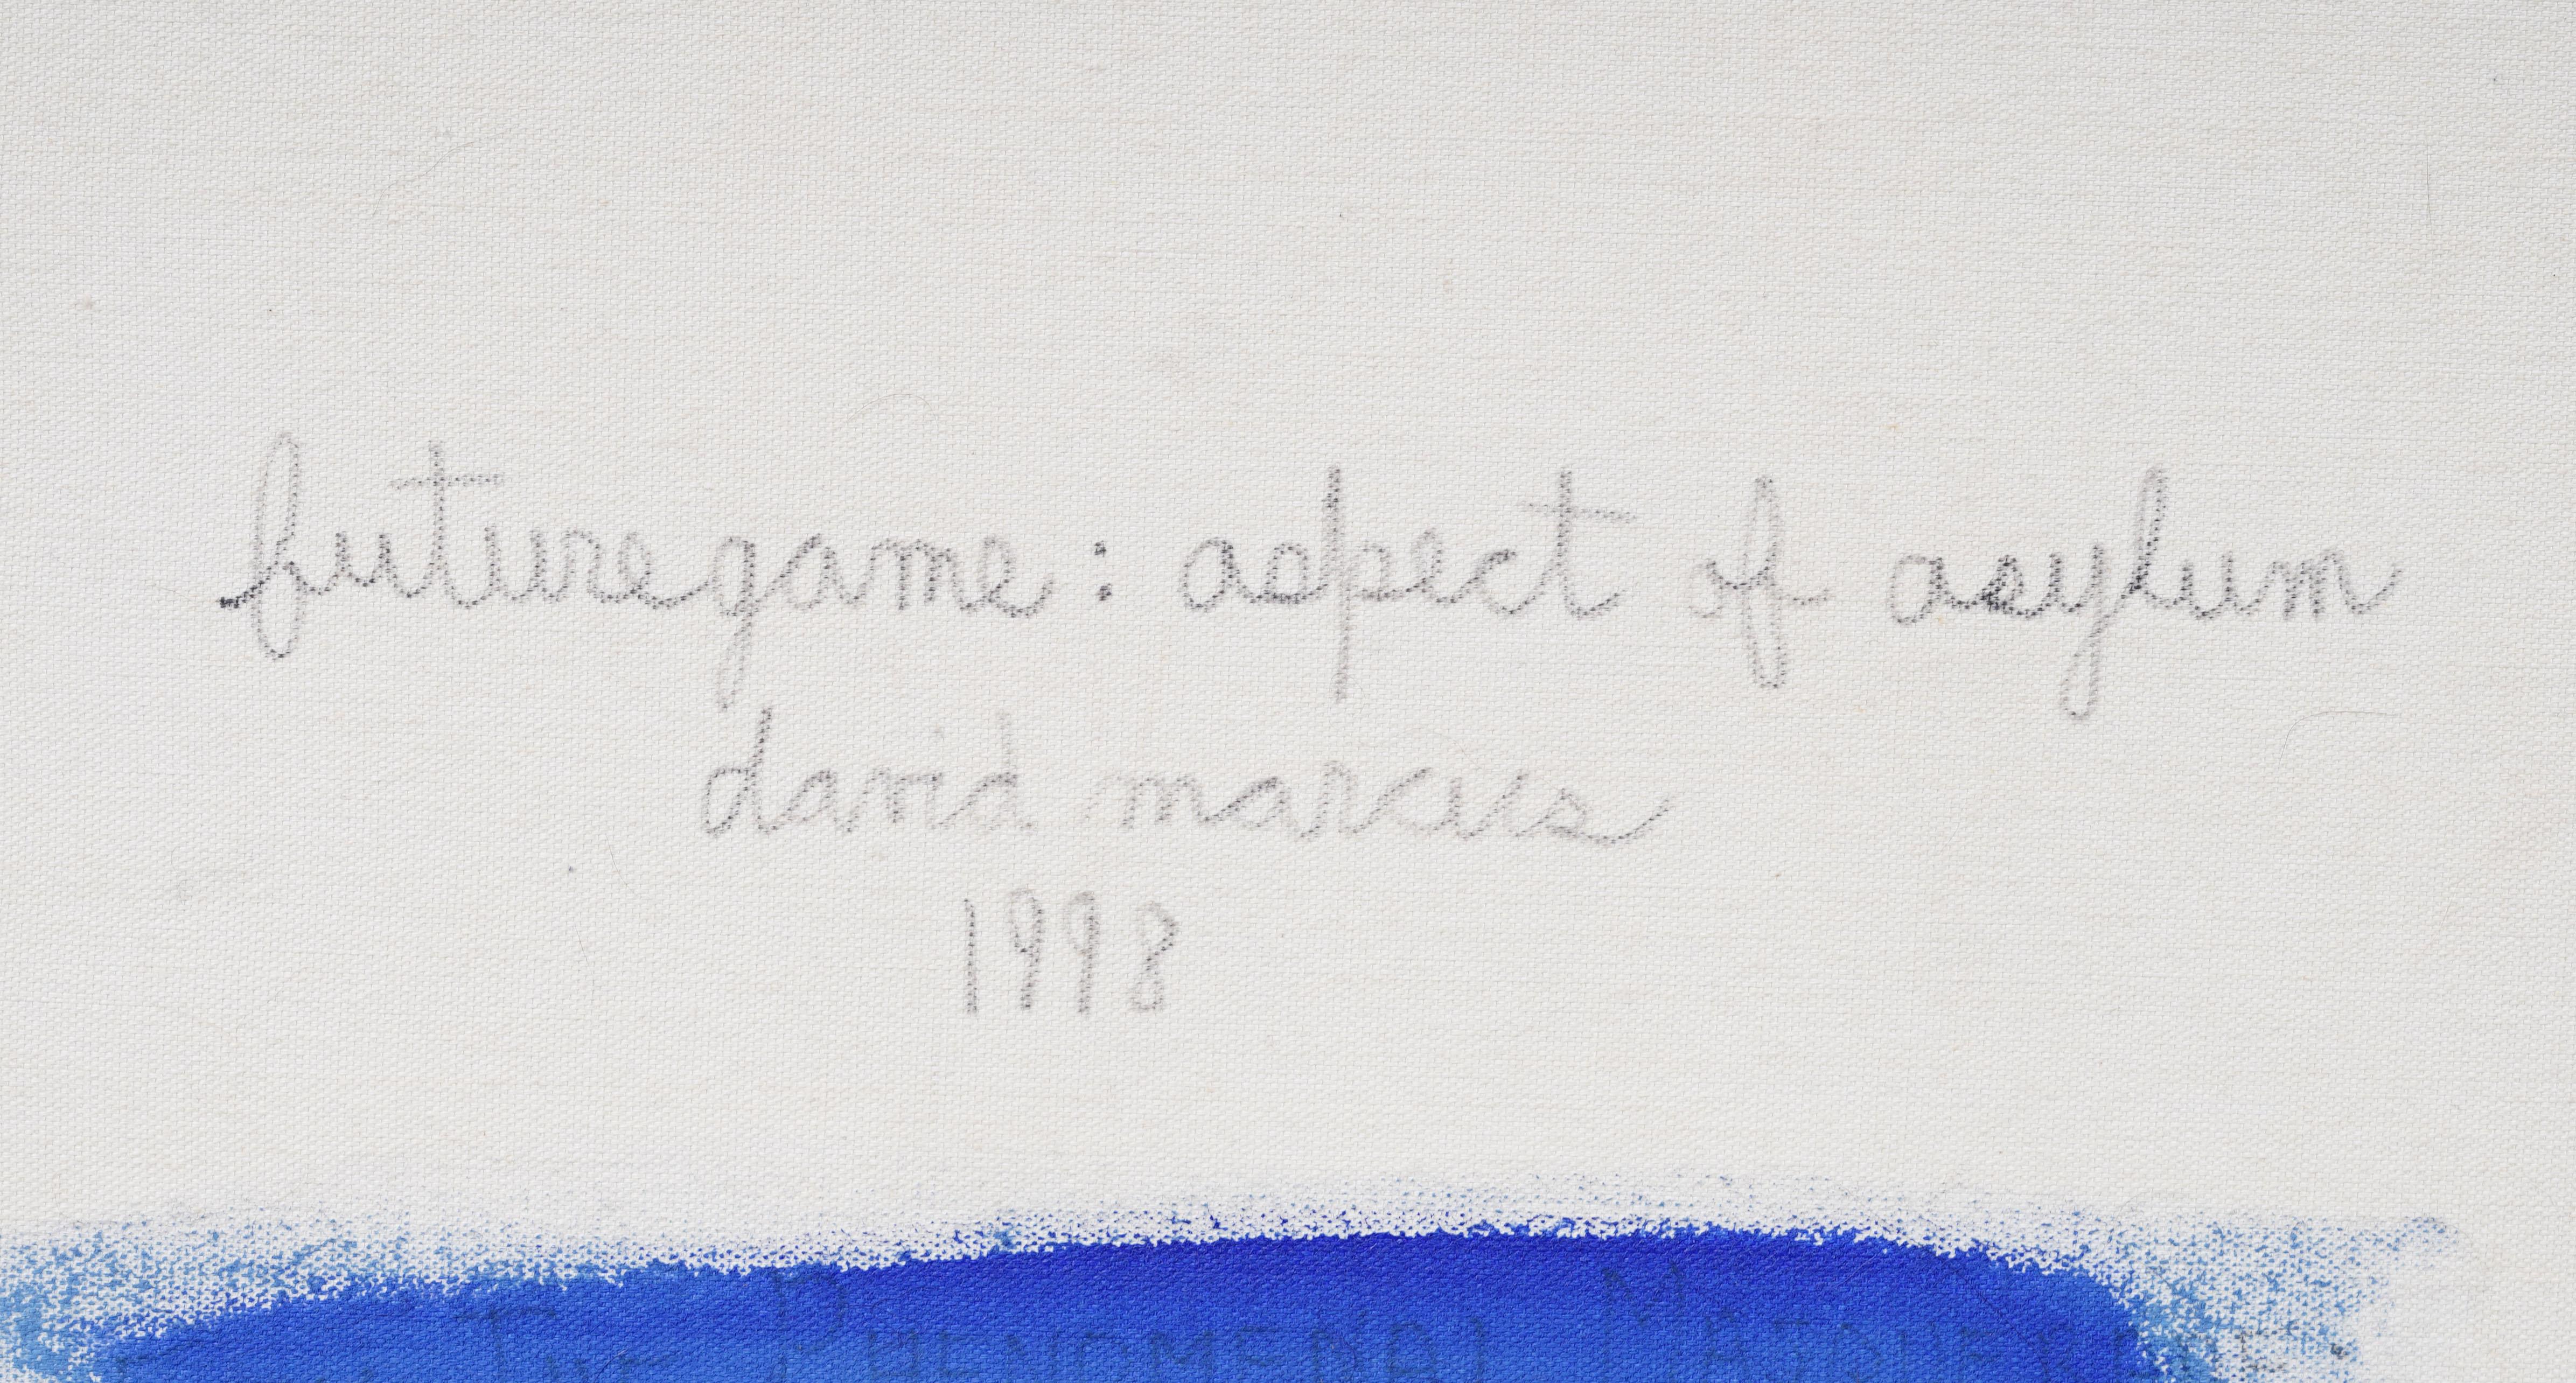 futuregame : aspect of asylum
david marcus
1998
The PHENOMENAL